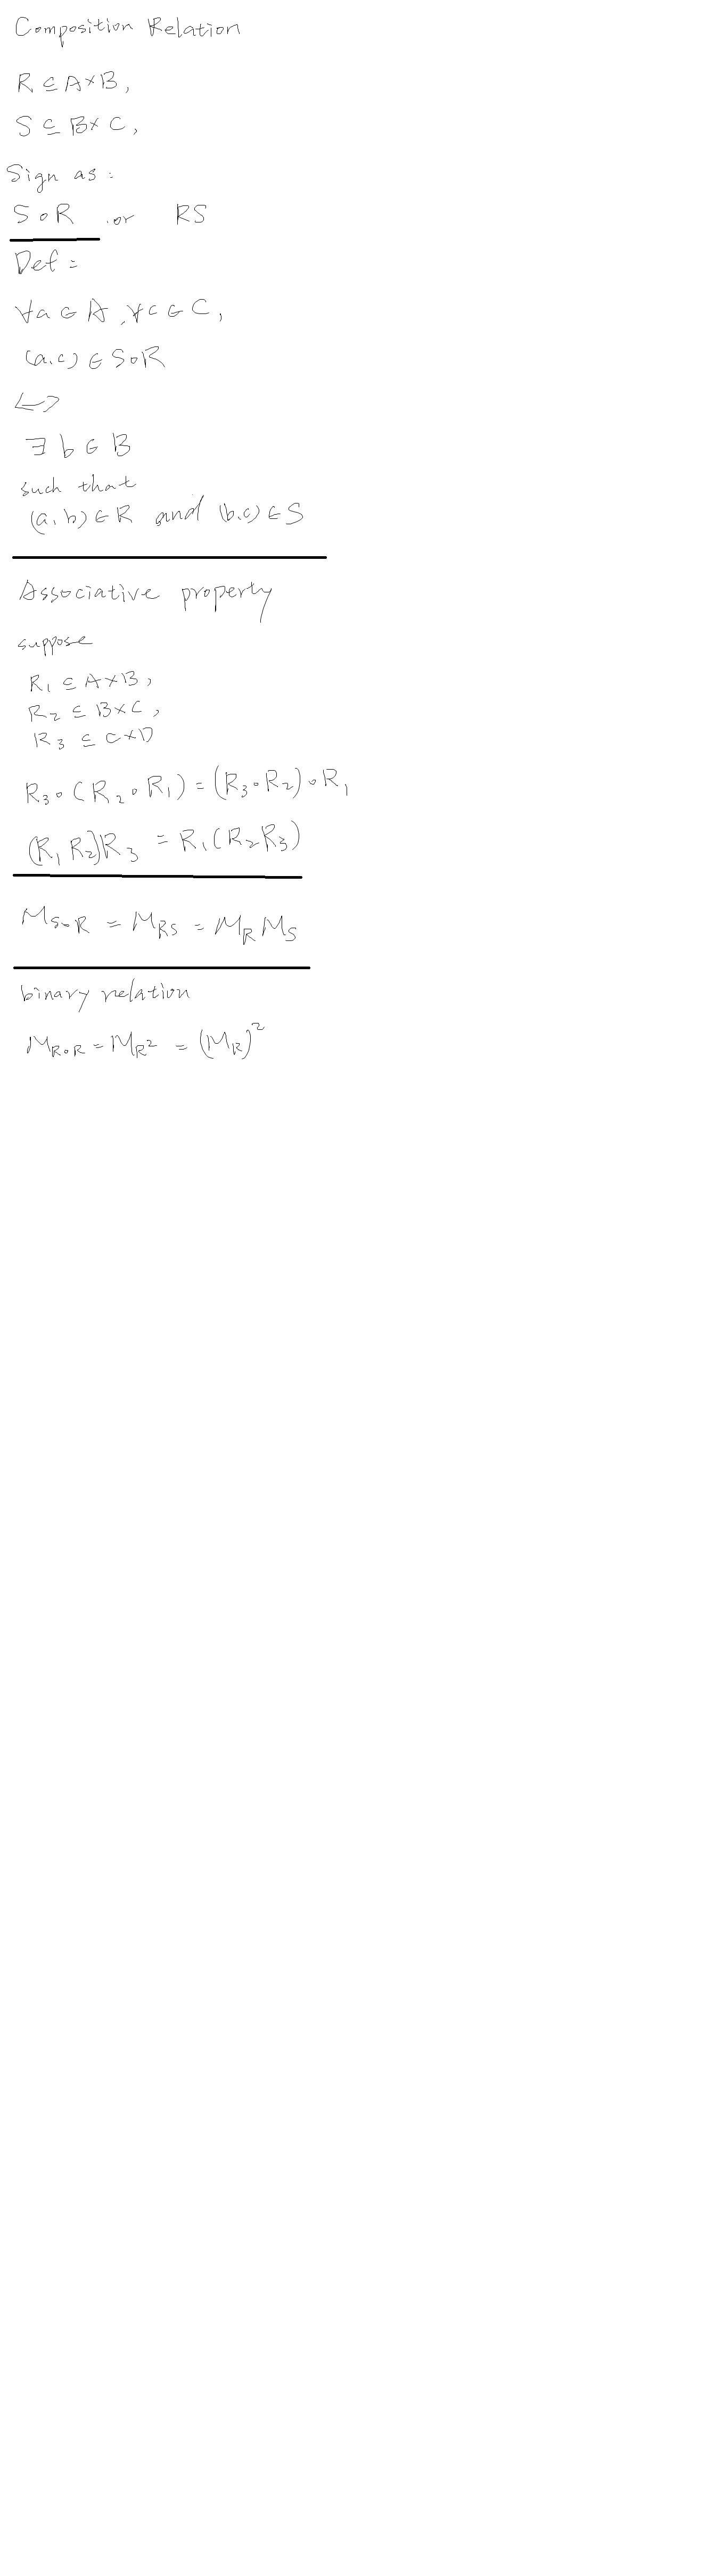 Composition Relation
R ⊆ A×B,
S ⊆ B×C,
Sign as:
S∘R or RS
Def:
∀a∈A, ∀c∈C,
(a,c)∈S∘R
<->
∃b∈B
such that
(a,b)∈R and (b,c)∈S
Associative property
suppose
R₁ ⊆ A×B,
R₂ ⊆ B×C,
R₃ ⊆ C×D
R₃∘(R₂∘R₁)=(R₃∘R₂)∘R₁
(R₁R₂)R₃ = R₁(R₂R₃)
M_{S∘R} = M_{RS} = M_R M_S
binary relation
M_{R∘R} = M_{R²} = (M_R)²